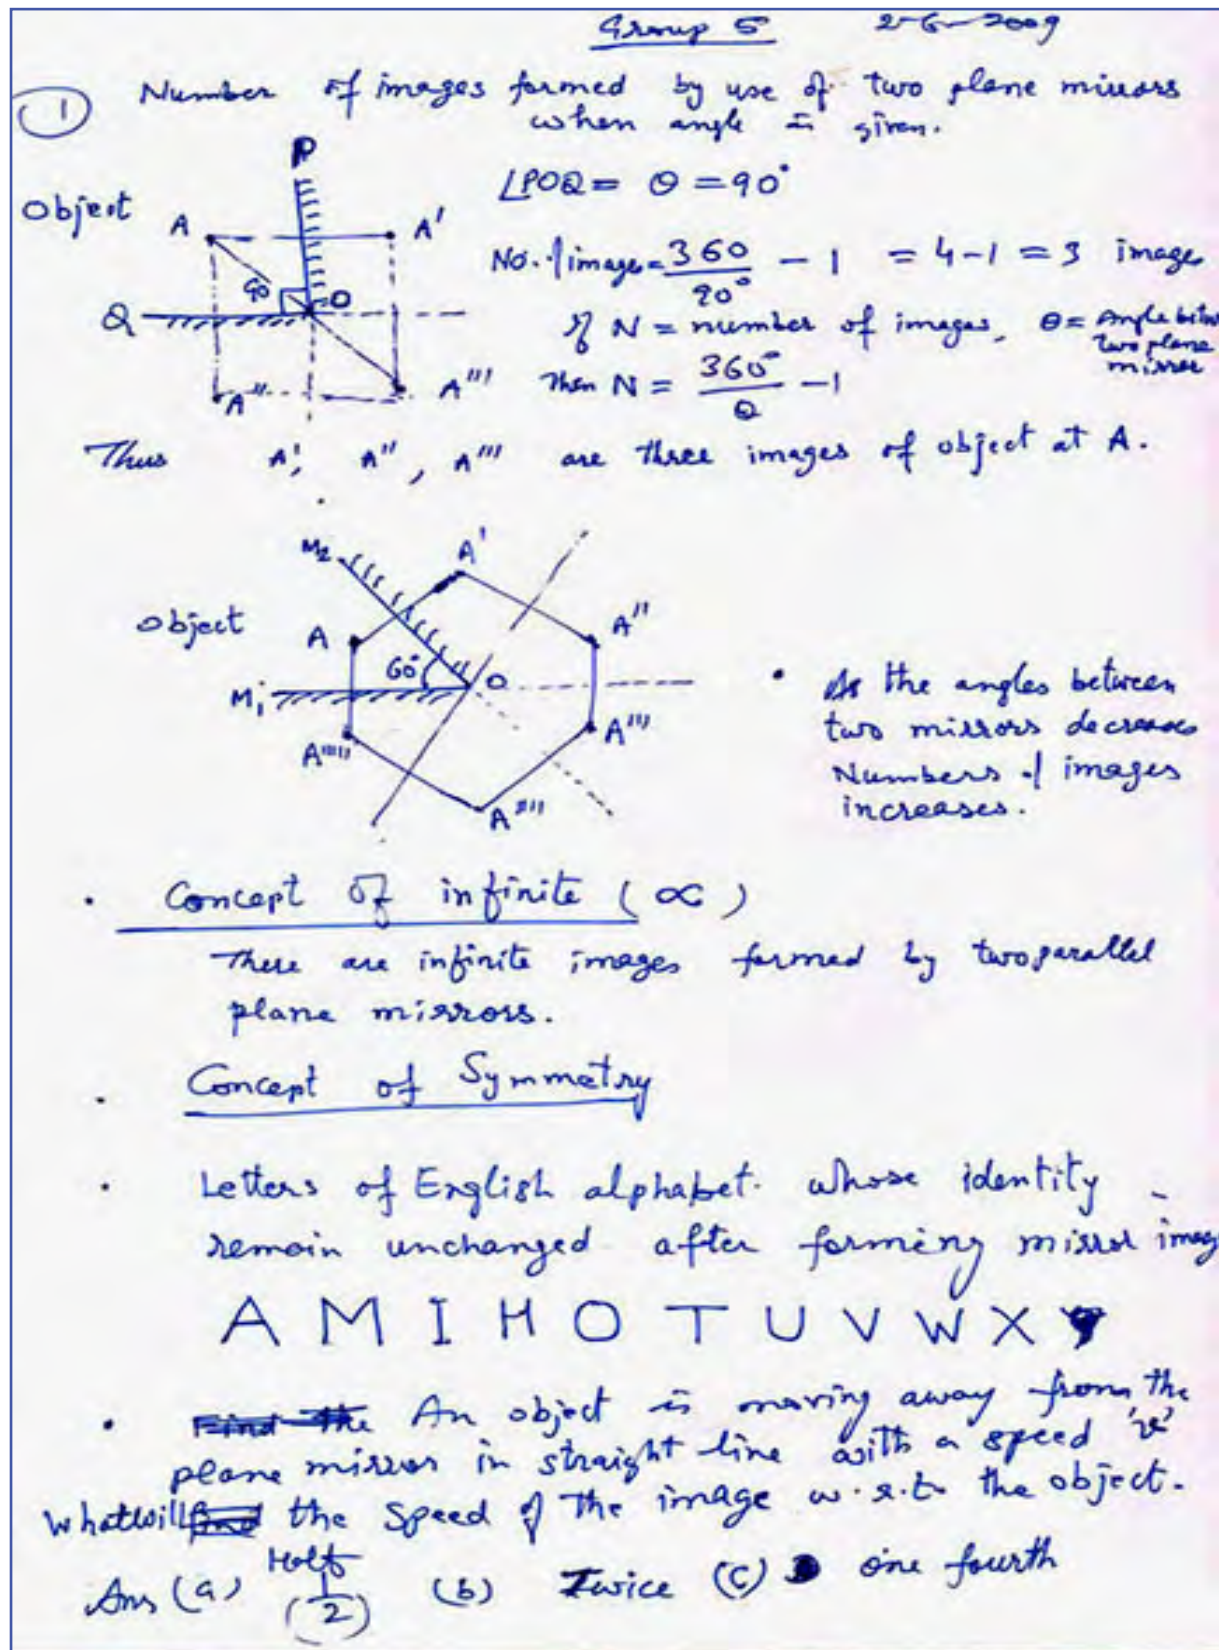 Group 5 2-6-2009
1 Number of images formed by use of two plane mirrors
when angle is given.
P
∠POQ = θ = 90°
Object A A'
No. of images = 360/90° - 1 = 4-1 = 3 image
90 O
Q
If N = number of images, θ = Angle betw
two plane
mirror
A'' A''' Then N = 360°/θ - 1
Thus A', A'', A''' are three images of object at A.
M2 A'
Object A A''
60° O
M1
• As the angles between
two mirrors decreases
Numbers of images
increases.
A''''' A'''
A''''
• Concept of infinite (∝)
There are infinite images formed by two parallel
plane mirrors.
• Concept of Symmetry
• Letters of English alphabet. whose identity
remain unchanged after forming mirror imag
A M I H O T U V W X Y
• Find the An object is moving away from the
plane mirror in straight line with a speed 'v'
What will the speed of the image w.r.to the object.
Half
Ans (a) (1/2) (b) Twice (c) one fourth